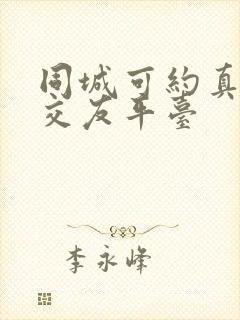 同城可約真
交友平臺
李永峰